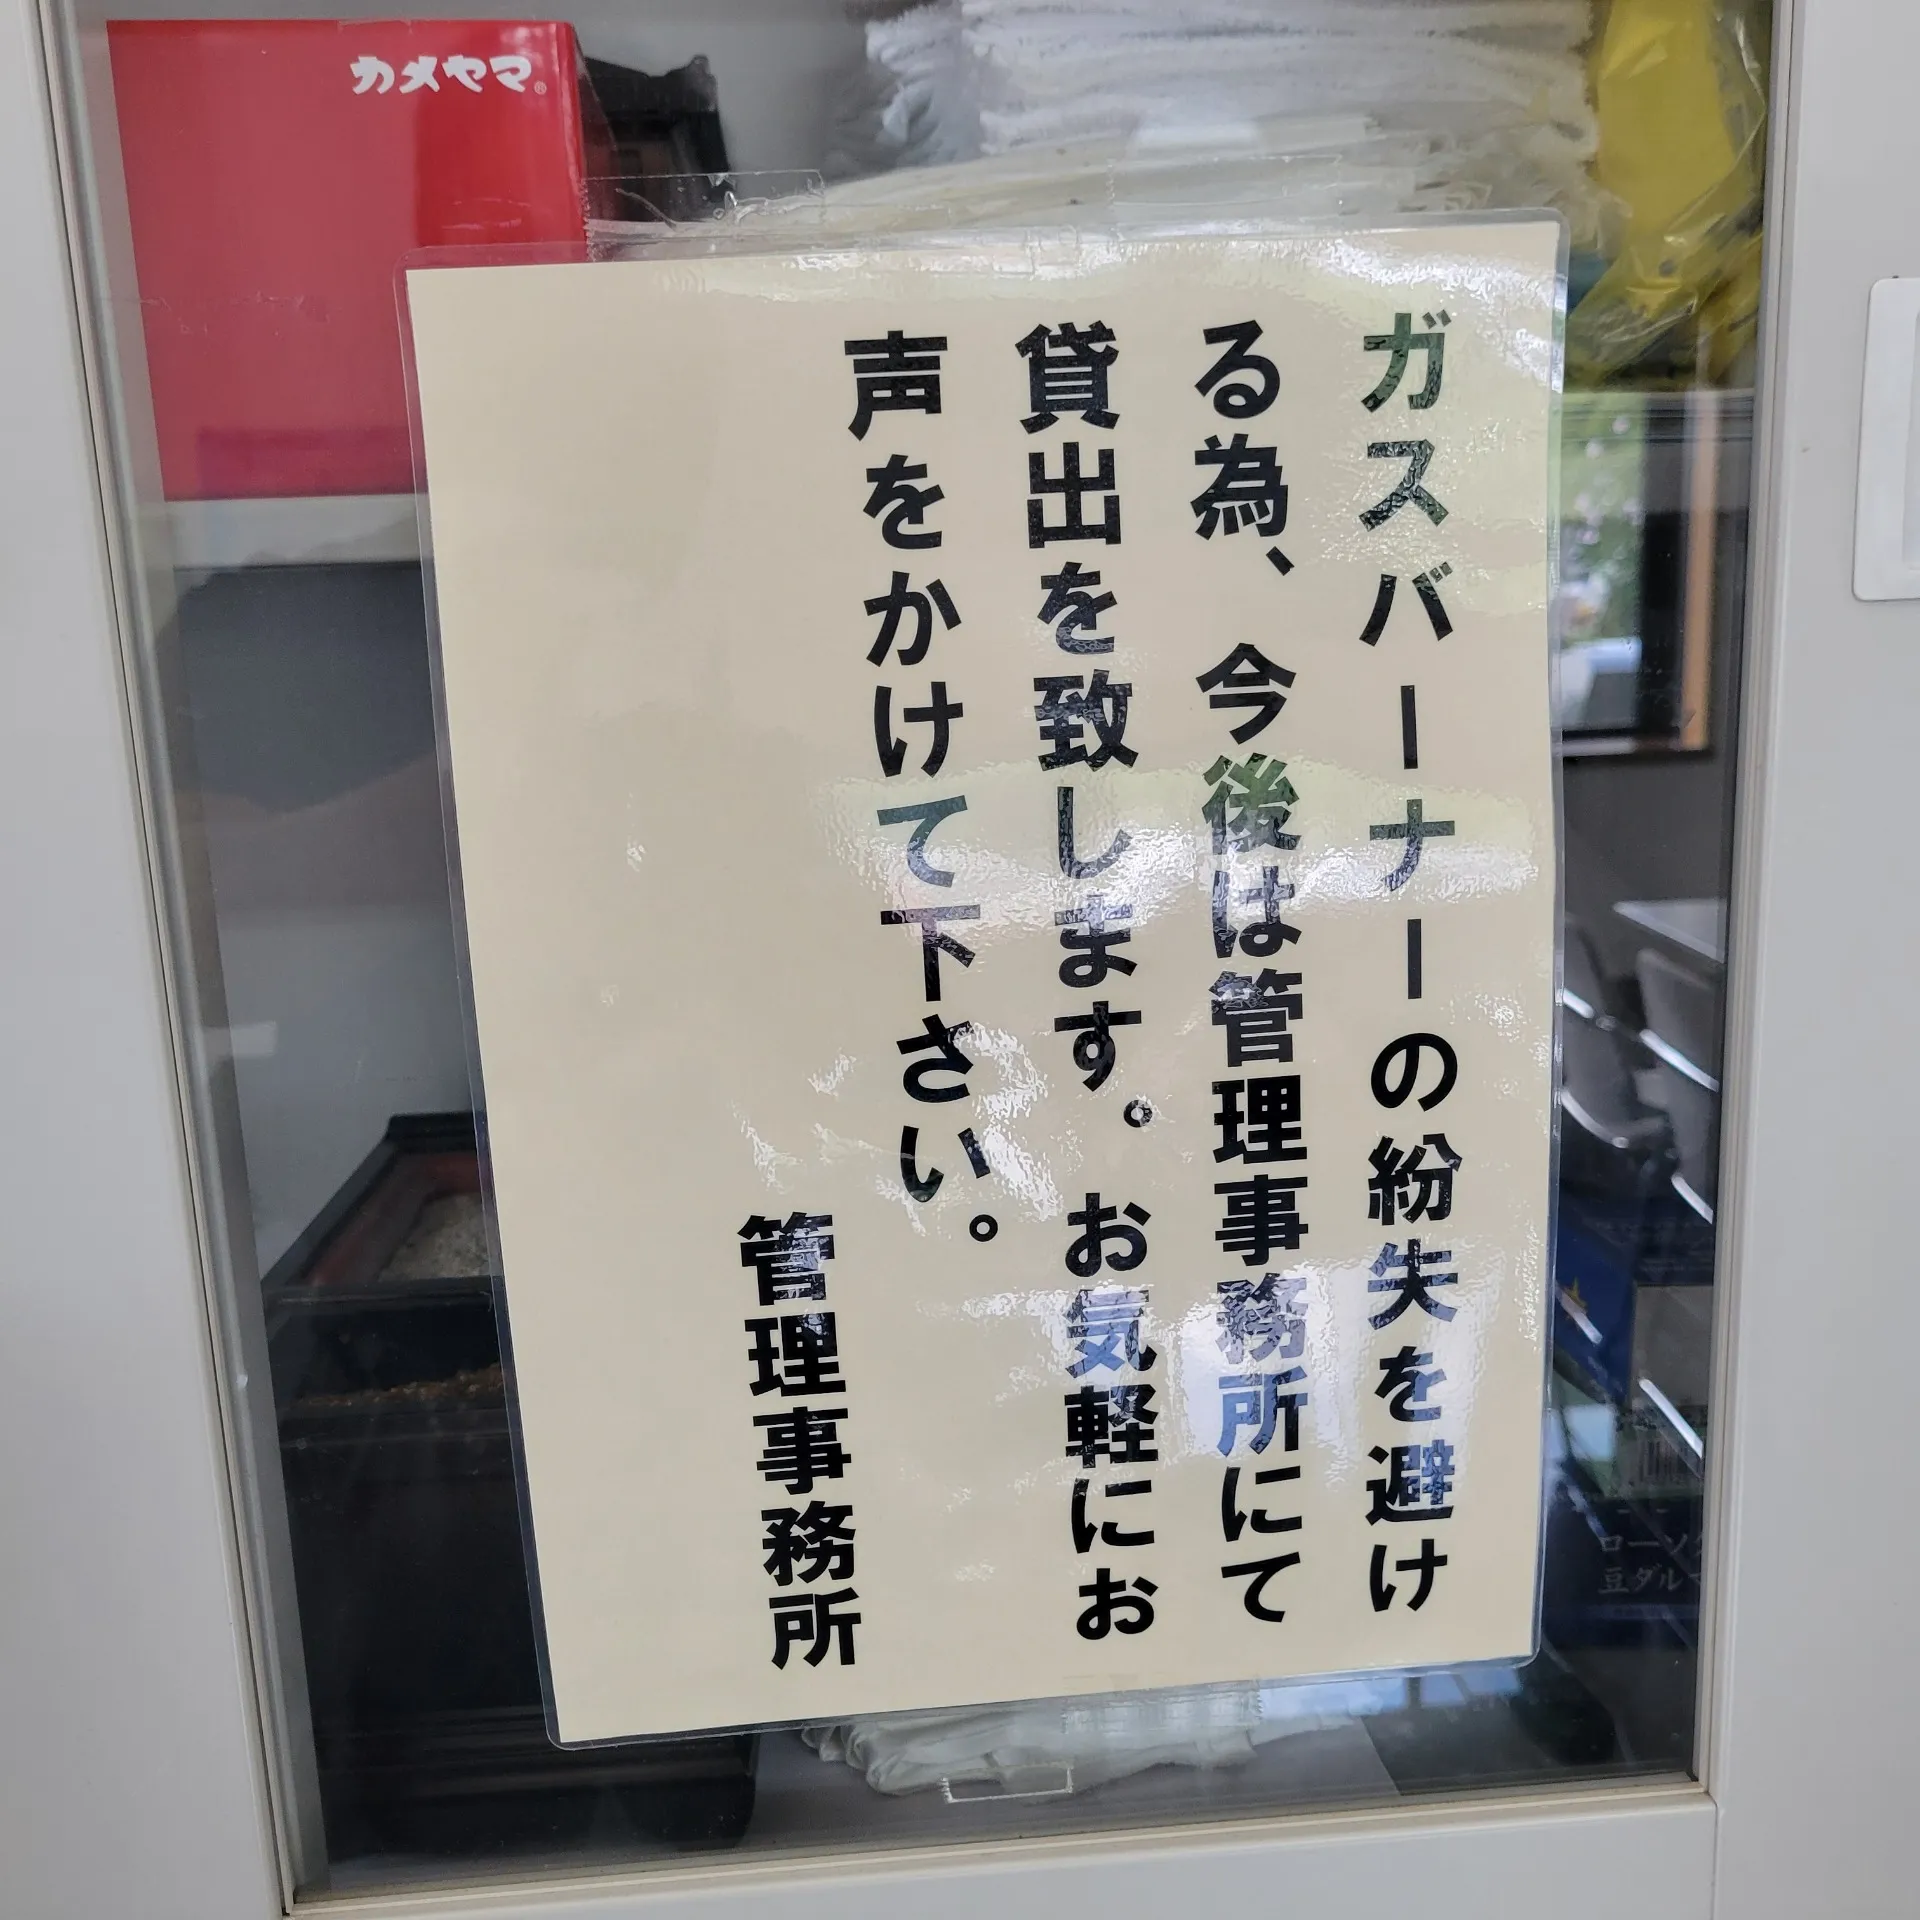 カメヤマ®
ガスバーナーの紛失を避け
る為、今後は管理事務所にて
貸出を致します。お気軽にお
声をかけて下さい。
管理事務所
豆ダルマ